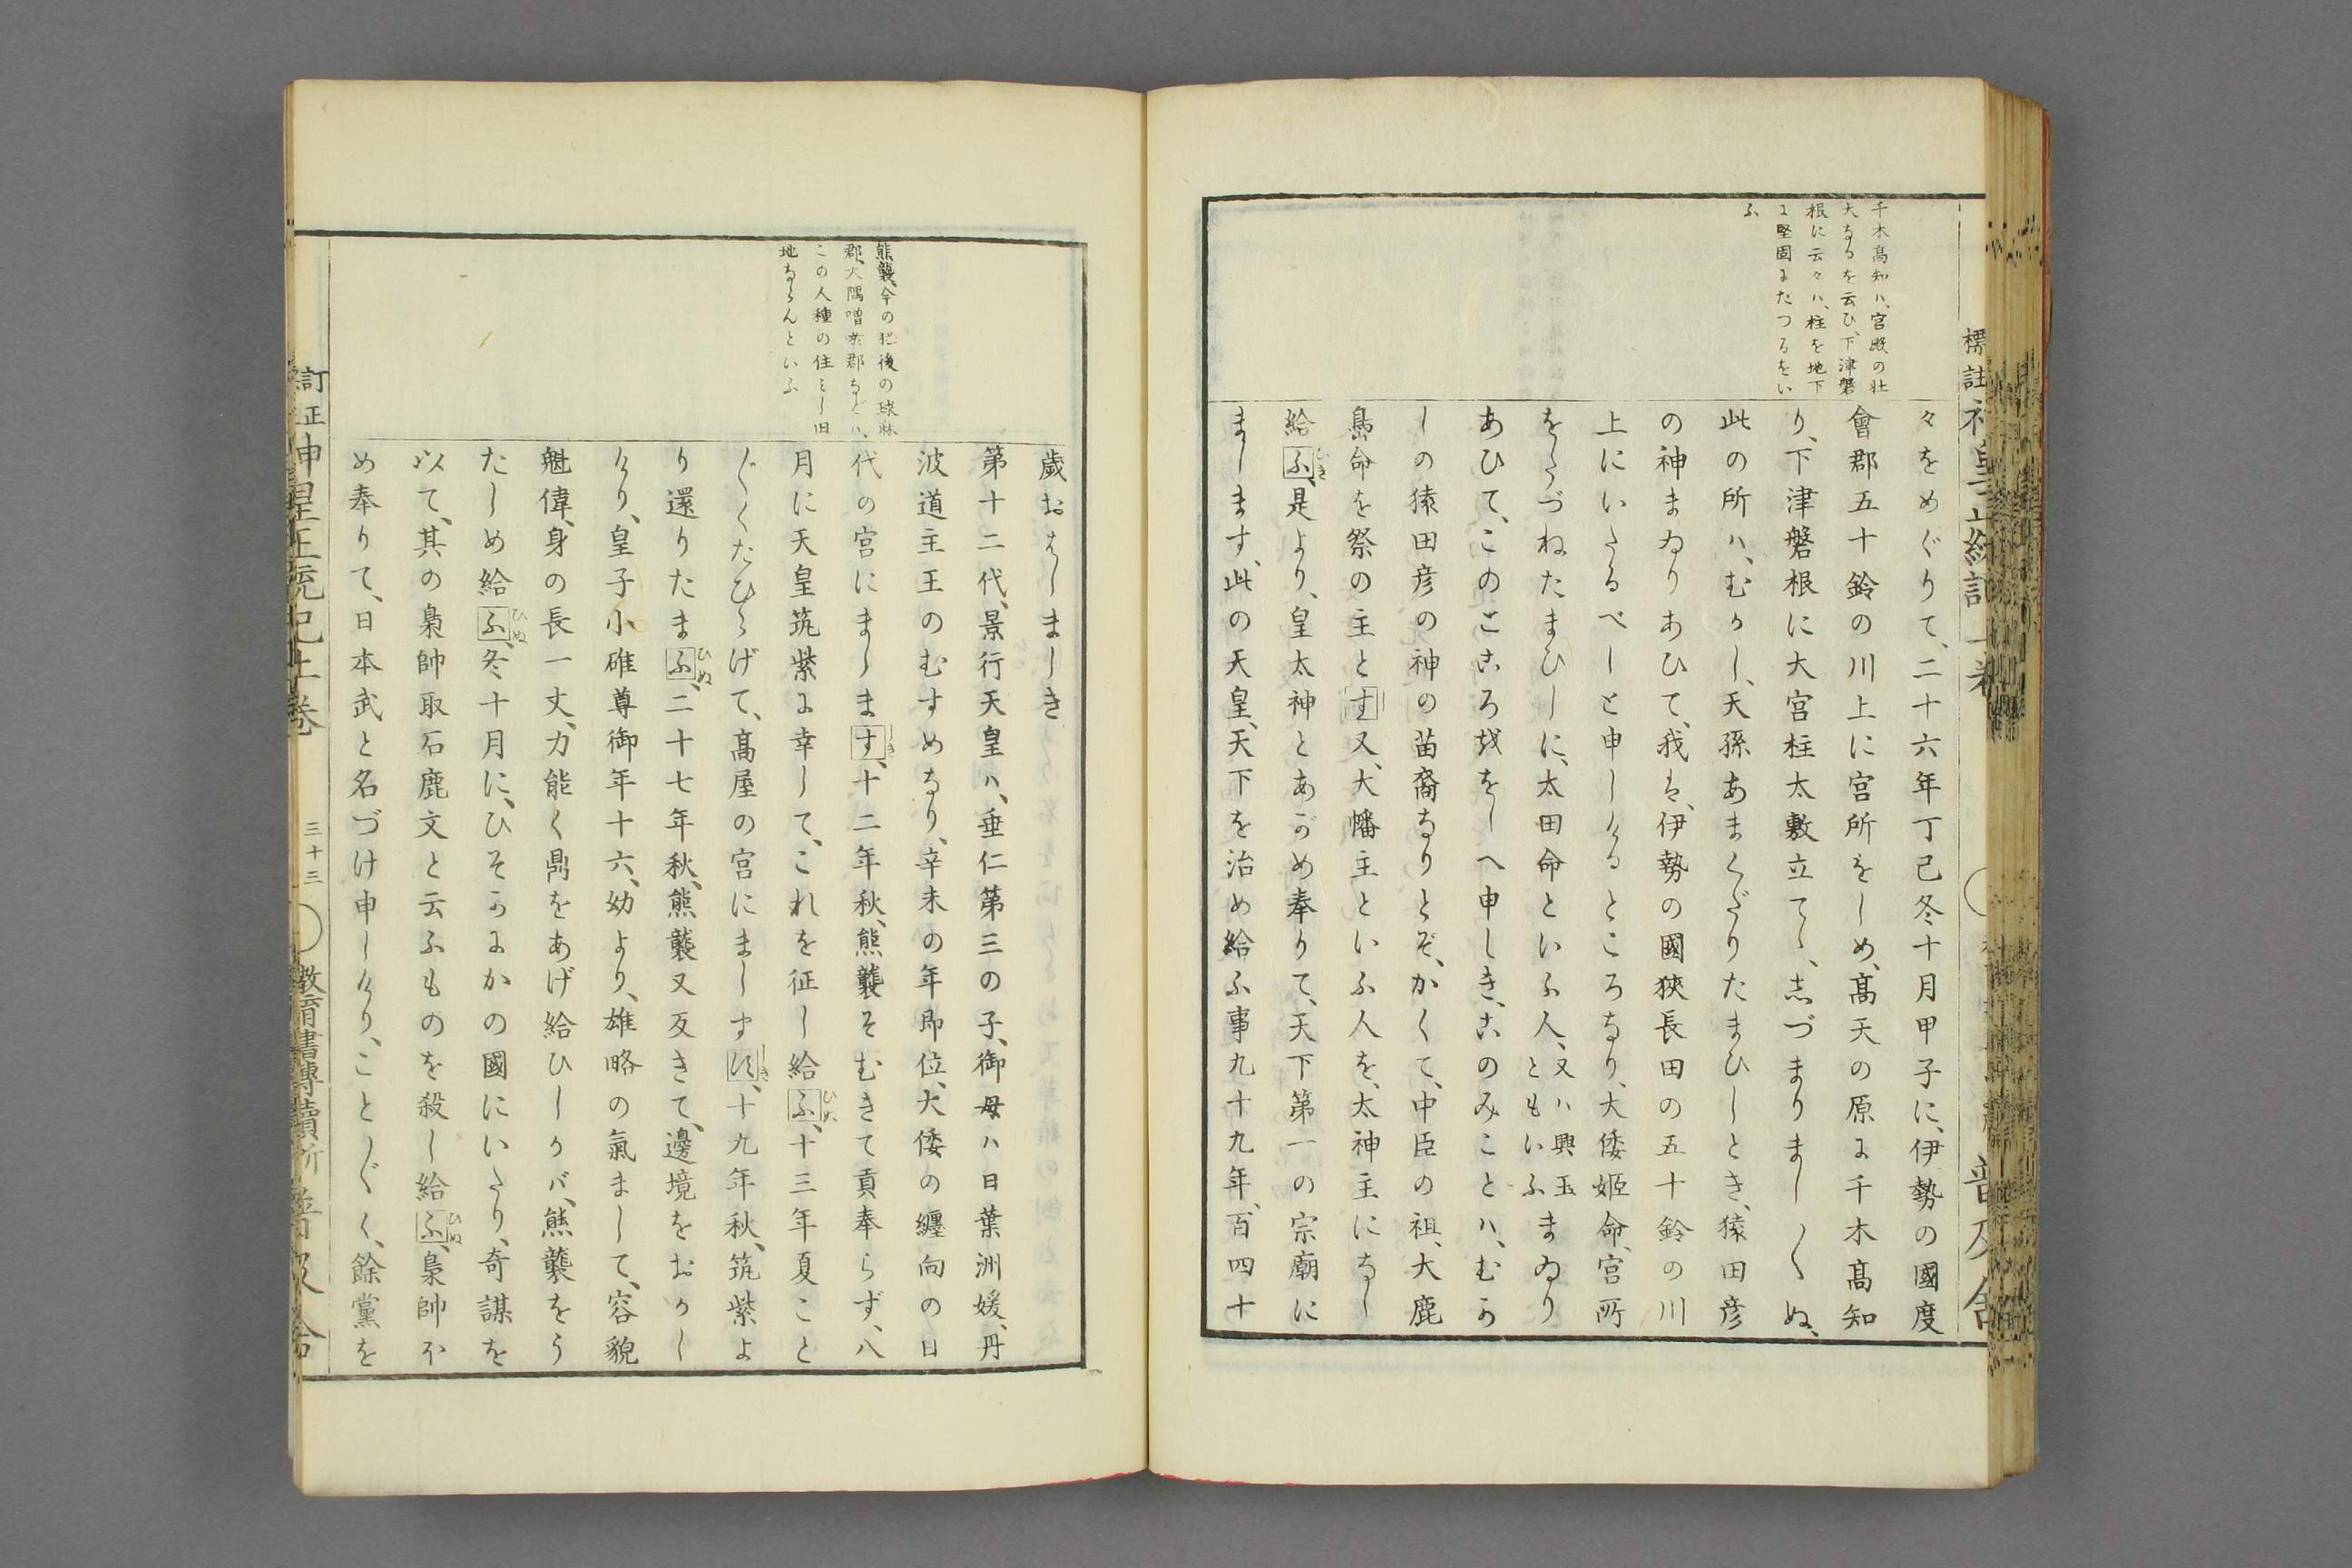 千木髙知ハ、宮殿の壮
大なるを云ひ、下津磐
根に云々ハ、柱を地下
に堅固にたつるをい
ふ
々をめぐりて、二十六年丁巳冬十月甲子に、伊勢の國度
會郡五十鈴の川上に宮所をしめ、髙天の原に千木髙知
り、下津磐根に大宮柱太敷立てゝ、志づまりまし〱ぬ、
此の所ハ、むかし、天孫あまくだりたまひしとき、猿田彦
の神まゐりあひて、我は、伊勢の國狹長田の五十鈴の川
上にいたるべしと申しけるところなり、大倭姬命、宮所
をたづねたまひしに、太田命といふ人、又ハ興玉ともいふまゐり
あひて、このところ越をしへ申しき、このみことハ、むか
しの猿田彦の神の苗裔なりとぞ、かくて、中臣の祖、大鹿
島命を祭の主とす又、大幡主といふ人を、太神主になし
給ふ、是より、皇太神とあがめ奉りて、天下第一の宗廟に
まします、此の天皇、天下を治め給ふ事九十九年、百四十
標註
普及舎
熊襲、今の肥後の球麻
郡、大隅噌唹郡などハ、
この人種の住みし旧
地ならんといふ
歲おはしましき
第十二代、景行天皇ハ、垂仁第三の子、御母ハ日葉洲媛、丹
波道主王のむすめなり、辛未の年即位、大倭の纏向の日
代の宮にましゝます、十二年秋、熊襲そむきて貢奉らず、八
月に天皇筑紫に幸して、これを征し給ふ、十三年夏こと
〲くたひらげて、髙屋の宮にましす、十九年秋、筑紫よ
り還りたまふ、二十七年秋、熊襲又反きて、邊境をおかし
けり、皇子小碓尊御年十六、幼より、雄略の氣まして、容貌
魁偉、身の長一丈、力能く鼎をあげ給ひしかバ、熊襲をう
たしめ給ふ、冬十月に、ひそかにかの國にいたり、奇謀を
以て、其の梟帥取石鹿文と云ふものを殺し給ふ、梟帥ほ
め奉りて、日本武と名づけ申しけり、こと〲く、餘黨を
訂正
神皇正統記上卷
三十三
教育書專賣所
普及舎